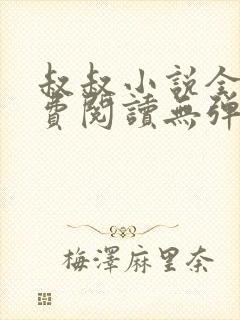 叔叔小说全
費閱讀無彈
梅澤麻里奈